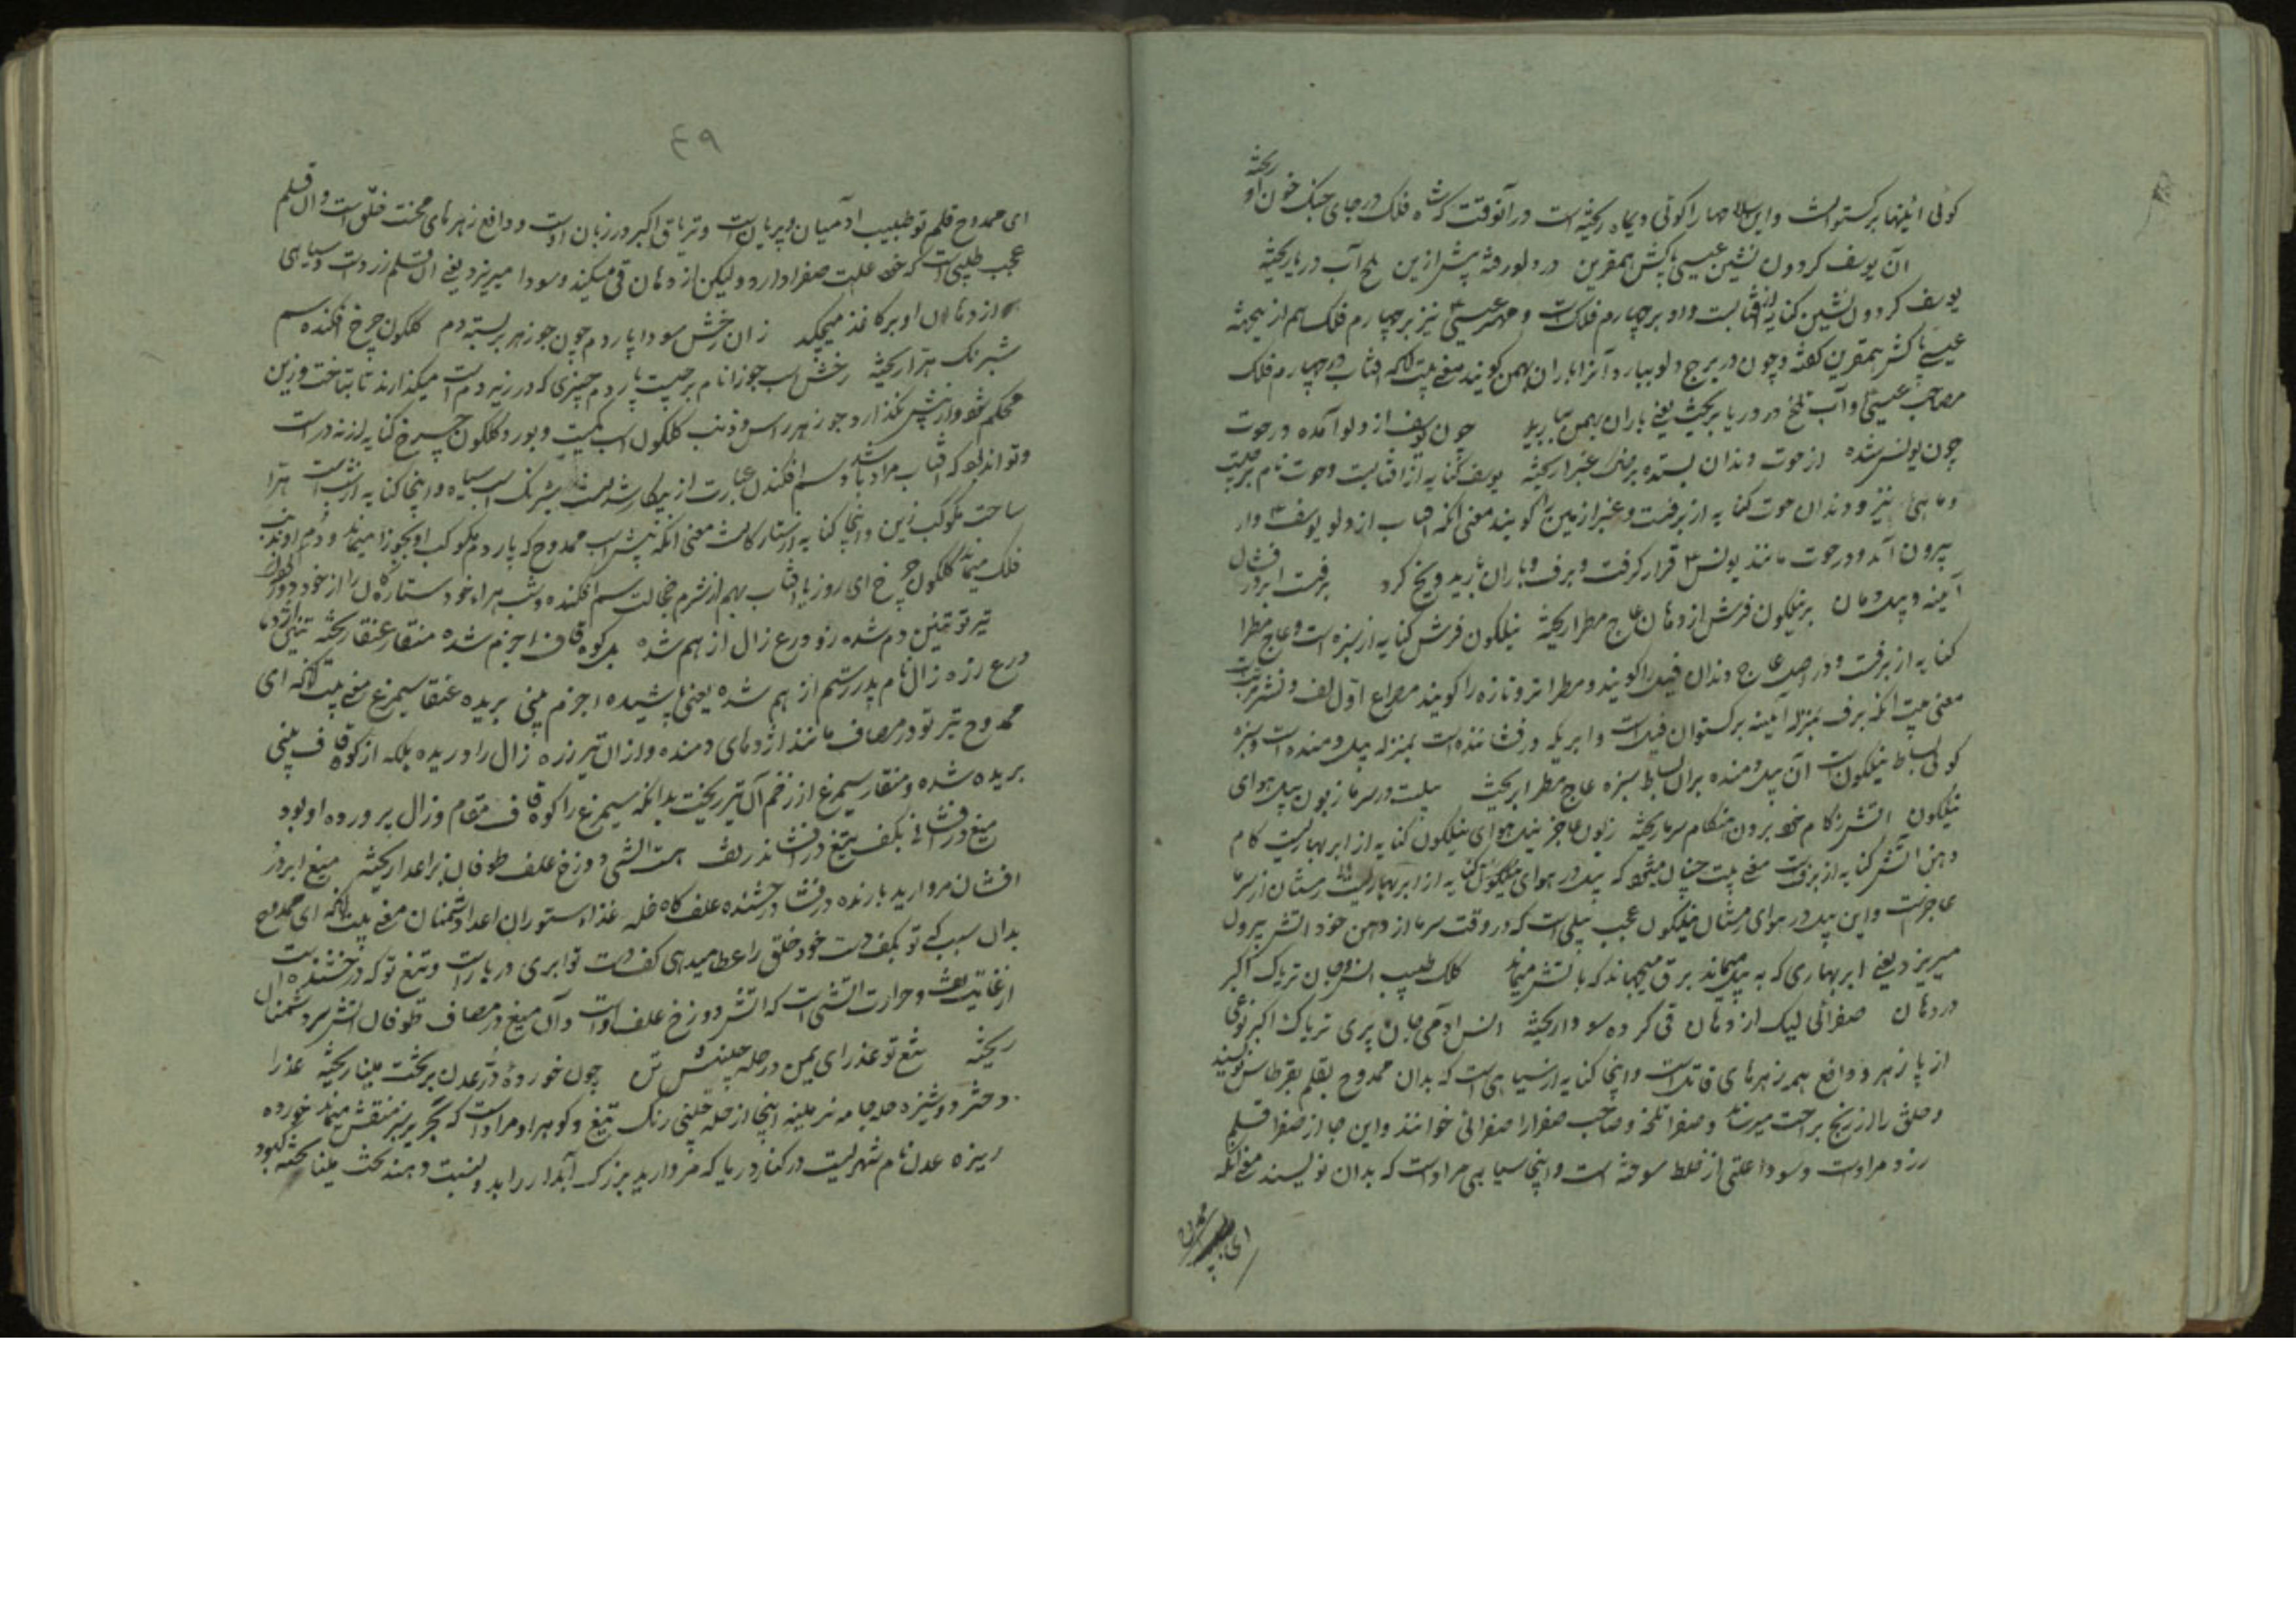 کوئی آئینها برکستوانست و این سلاحها را کوئی دیماه ریخته است در آنوقت که شاه فلک در جای جنک خون او ریخته
آن یوسف کردون نشین عیسی پاکش همقرین در دلو رفته پیش ازین تلخ آب دریا ریخته
یوسف کردون نشین کنایه از آفتابست و او بر چهارم فلکست و مهتر عیسی نیز بر چهارم فلک هم از ینجهة
عیسی پاکش همقرین کفته و چون در برج دلو ببارد آنرا باران بهمن کویند معنی بیت آنکه آفتاب در چهارم فلک
مصاحب عیسی و آب تلخ در دریا بریخت یعنی باران بهمن ببارید چون یوسف از دلو آمده در حوت
چون یونس شده از حوت دندان بستده بر خاک عنبرا ریخته یوسف کنایه از آفتابست و حوت نام برجیست
و ماهی نیز و دندان حوت کنایه از برفست و عنبر از مین را کویند معنی آنکه آفتاب از دلو یوسف وار
بیرون آمد و در حوت مانند یونس قرار کرفت و برف و باران بارید و یخ کرد برفست ابر درفشان
آینه و پیل دمان بر نیلکون فرش از دهان عاج مطرا ریخته نیلکون فرش کنایه از سبزه است و عاج مطرا
کنایه از برفست و در اصل عاج دندان فیل را کویند و مطرا تر و تازه را کویند مصراع اول لف و نشر مرتبست
معنی بیت آنکه برف بمنزله آینه برکستوان فیلست و ابر یکه درفشاننده است بمنزله پیل دمنده است و سبزه
کوئی بساط نیلکونست آن پیل دمنده بران بساط سبزه عاج مطرا بریخت پیلست در سرما زبون پیل هوای
نیلکون آتش ز کام خود برون هنکام سرما ریخته زبون عاجز پیل هوای نیلکون کنایه از ابر بهاریست کام
دهن آتش کنایه از برقست معنی بیت چنان میشود که پیل در هوای نیلکون کنایه از ابر بهاریست زمستان از سرما
عاجزست و این پیل در هوای زمستان نیلکون عجب پیلی است که در وقت سرما از دهن خود آتش بیرون
میریزد یعنی ابر بهاری که به پیل میماند برق میجهاند که بآتش میماند کلک طبیب انس و جان تریاک اکبر
در دهان صفرائی لیک از دهان قی کرده سودا ریخته انس آدمی جان پری تریاک اکبر نوعی
از پا زهر و دافع همه زهرهای قاتلست و اینجا کنایه از سیاهی است که بدان ممدوح بقلم بقرطاس نویسد
و خلق را از رنج براحت میرساند و صفرا تلخه و صاحب صفرا را صفرائی خوانند و این جا از صفرا قلم
زرد مرادست و سودا علتی از خلط سوخته است و اینجا سیاهی مرادست که بدان نویسند معنی آنکه
ای ممدوح
٤٩
ای ممدوح قلم تو طبیب آدمیان و پریانست و تریاق اکبر در زبان اوست و دافع زهرهای محنت خلق است و آن قلم
عجب طبیبی است که خود علت صفرا دارد و لیکن از دهان قی میکند و سودا میریزد یعنی آن قلم زردست و سیاهی
از دهان او بر کاغذ میچکد زان رخش سودا پاردم چون جوزهر بر بسته دم کلکون چرخ افکنده سم
شبرنک هرا ریخته رخش اسب جوزا نام برجیست پاردم چیزی که در زیر دم اسب میکذارند تا بتاخت و زین
محکم شود و از پیش نکذارد جوزهر راس و ذنب کلکون اسب کمیت و بور و کلکون چرخ کنایه از زنده راست
و تواند بود که آفتاب مراد باشد و سم افکندن عبارت از بیکار شدنست شبرنک اسب سیاه و اینجا کنایه از شب است هرا
ساخت مکوکب زین و اینجا کنایه از ستارکانست معنی آنکه پیش اسب ممدوح که پاردم مکوکب او بجوزا میماند و دم او بذنب
فلک میماند کلکون چرخ ای روز یا آفتاب بهم از شرم خجالت سم افکنده و شب هراء خود ستارکان را از خود دور کرد
تیر تو تنین دم شده زو درع زال از هم شده بل کوه قاف اجزم شده منقار عنقا ریخته تنین اژدها
درع زره زال نام پدر رستم از هم شده یعنی پاشیده اجزم بینی بریده عنقا سیمرغ معنی بیت آنکه ای
ممدوح تیر تو در مصاف مانند اژدهای دمنده و ازان تیر زره زال را دریده بلکه از کوه قاف بینی
بریده شده و منقار سیمرغ از زخم آن تیر ریخت بدانکه سیمرغ را کوه قاف مقام و زال پرورده او بود
میغ درفشانی بکف تیغ درفشان در تف هست آتشی دوزخ علف طوفان بر اعدا ریخته میغ ابر در
افشان مروارید بارنده درفشان درخشنده علف کاه غله غذاء ستوران اعدا دشمنان معنی بیت آنکه ای ممدوح
بدان سبب که تو بکف دست خود خلق را عطا میدهی کف دست تو ابری دربارست و تیغ تو که درخشنده است آن
از غایت تف و حرارت آتشی است که آتش دوزخ علف اوست و آن میغ در مصاف طوفان آتش بر سر دشمنان
ریخته تیغ تو عذرای یمن در حله چینیش تن چون خورده در عدن بر تخت مینا ریخته عذرا
دختر دوشیزه حله جامه نرمینه اینجا از حله چینی رنک تیغ و کوهر او مرادست که بحریر سبز منقش میماند خورده
ریزه عدن نام شهریست در کنار دریا که مروارید بزرک آبدار دراید و نسبت دهند تخت مینا تخته کبود